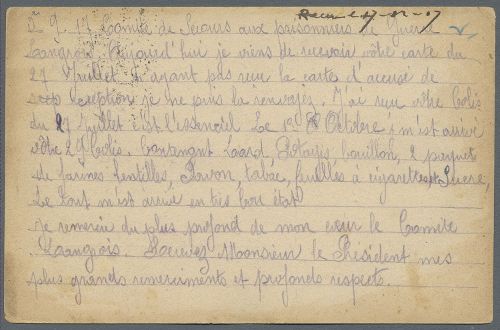 Comité de Secours aux prisonniers de Guerre
Langrois. Aujourd'hui je viens de recevoir vôtre carte du
27 Juillet. N'ayant pas reçu la carte d'accusé de
réception je ne puis la renvoyez. J'ai reçu vôtre Colis
du 27 Juillet c'est l'essenciel Le 1er 8 Octobre, m'est arrivé
vôtre 29 Colis. Contenant Lard Potages, bouillon, 2 paquets
de farines lentilles, Savon, tabac, feuilles à cigarettes et Sucre,
Le Tout m'est arrivé en très bon état
Je remercie du plus profond de mon cœur le Comité
Langrois. Recevez, Monsieur le Président mes
plus grands remerciments et profonds respects.